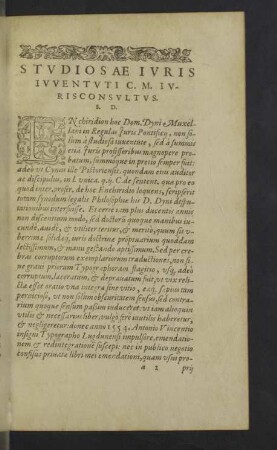 STVDIOSAE IVRIS
IVVENTVTI C. M. IV-
RISCONSVLTVS.
S. D.
ENchiridion hoc Dom. Dyni à Muxel-
lani in Regulas Iuris Pontificij, non so-
lùm à studiosa iuuentute, sed à summis
etiā Iuris professoribus magnopere pro-
batum, summóque in precio semper fuit:
adeò vt Cynus ille Pistoriensis, quondam eius auditor
ac discipulus, in l. vnica. q.9. C. de sentent. quę pro eo
quod inter. prose. de hoc Enchiridio loquens, scripserit
totum synodum legalis Philosophię hoc D. Dyni dispu-
tationibus
non discentium modo, sed doctorū quoque manibus iu-
cundè, audi, & vtiliter teritur, & meritò, quum sit v-
berrima siṁul, iuris doctrinę promptuarium quoddam
ditissimum, & manu gestando aptissimum. Sed per cre-
bras corruptorum exemplarium traductiones, non si-
ne graui priorum Typographorum flagitio, vsq, adeò
corruptum, laceratum, & deprauatum fuit, vt vix reli-
cta esset oratio vna integra sine vitio, eaq, sępius tam
perturbata, vt non solùm obscurū esset sensus, sed contra-
rium quoque sensum passum induceret: vt iam alioquin
vtilis & necessarius liber, vulgò ferè inutilis haberetur,
& negligeretur: donec anno 1554. Antonij Vincentio
insigni Typographo Lugdunensi impulsore, emendatio-
nem & redintegrationē suscepi: nec in publico negotio
confisus priuatę libri mei emendationi, quam vsus pro-
a 2 prij